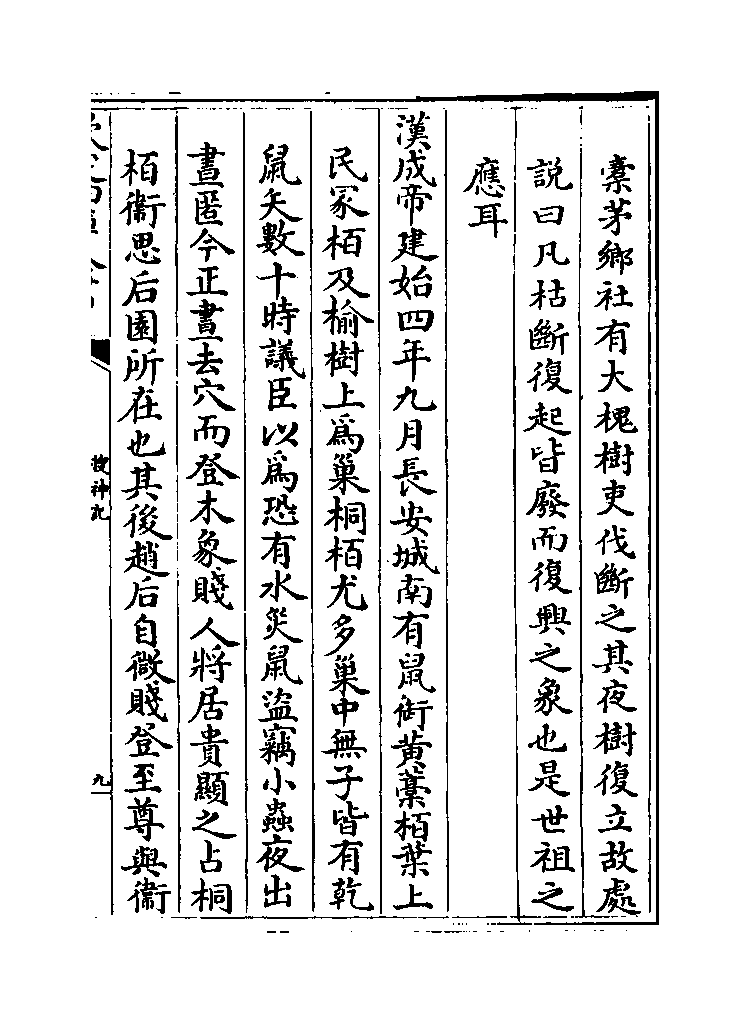 橐茅鄉社有大槐樹吏伐斷之其夜樹復立故處
說曰凡枯斷復起皆廢而復興之象也是世祖之
應耳
漢成帝建始四年九月長安城南有鼠銜黃藁栢葉上
民冢栢及榆樹上爲巢桐栢尤多巢中無子皆有乾
鼠矢數十時議臣以爲恐有水災鼠盜竊小蟲夜出
晝匿今正晝去穴而登木象賤人將居貴顯之占桐
栢衞思后園所在也其後趙后自微賤登至尊與衞
搜神記
九